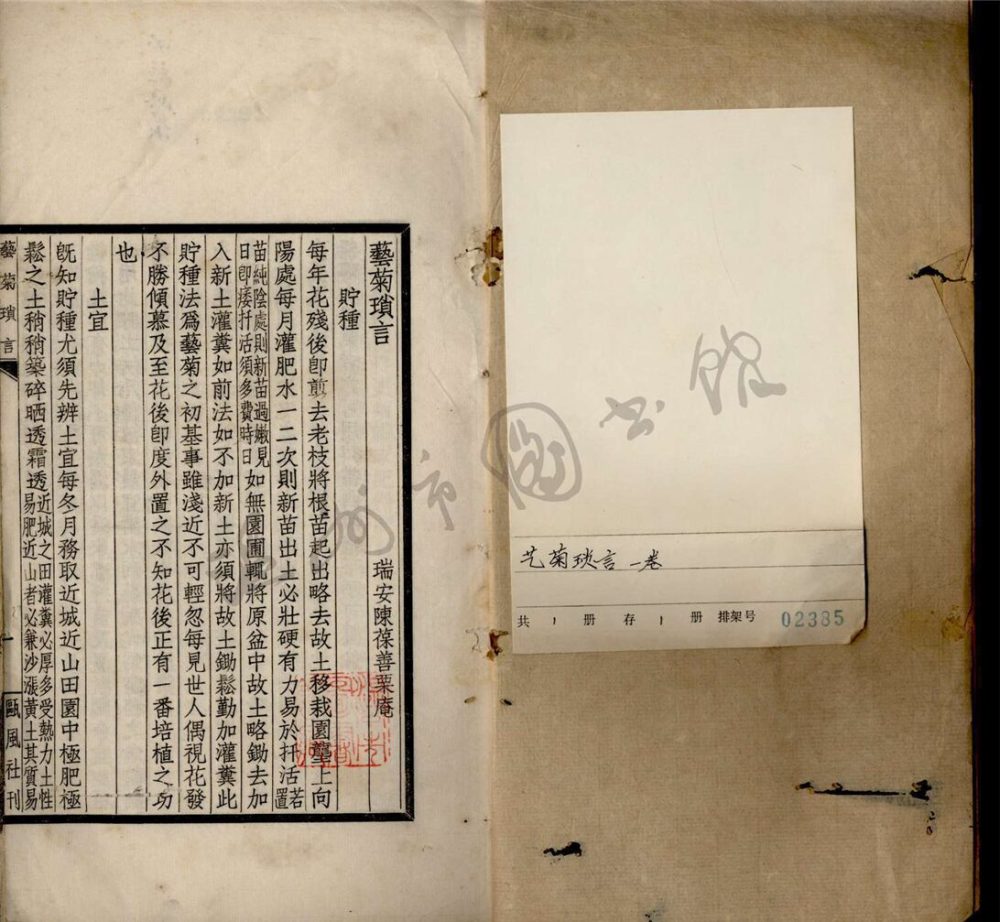 艺菊琐言 一卷
共 1 册 存 1 册 排架号 02385
市圖书館
藝菊瑣言
瑞安陳葆善栗庵
貯種
每年花殘後卽煎去老枝將根苗起出略去故土移栽園壟上向
陽處每月灌肥水一二次則新苗出土必壯硬有力易於扦活若置
苗純陰處則新苗過嫩見
日卽矮扦活須多費時日
如無園圃輒將原盆中故土略鋤去加
入新土灌糞如前法如不加新土亦須將故土鋤鬆勤加灌糞此
貯種法爲藝菊之初基事雖淺近不可輕忽每見世人偶視花發
不勝傾慕及至花後卽度外置之不知花後正有一番培植之功
也
土宜
旣知貯種尤須先辨土宜每冬月務取近城近山田園中極肥極
鬆之土稍稍築碎晒透霜透
近城之田灌糞必厚多受熱力土性
易肥近山者必兼沙漲黃土其質易
藝菊瑣言
一
甌風社刊